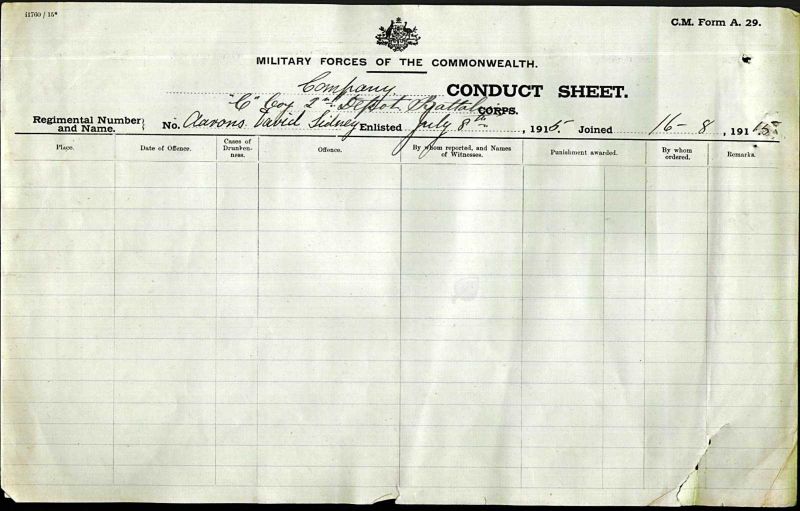 i1760 / 15*
C.M. Form A. 29.
MILITARY FORCES OF THE COMMONWEALTH.
Company CONDUCT SHEET.
"C" Coy 2nd Depot Battal CORPS.
Regimental Number and Name. } No. Aarons David Sidney Enlisted July 8th, 1915. Joined 16-8, 1915
Place. Date of Offence. Cases of Drunken-ness. Offence. By whom reported, and Names of Witnesses. Punishment awarded. By whom ordered. Remarks.